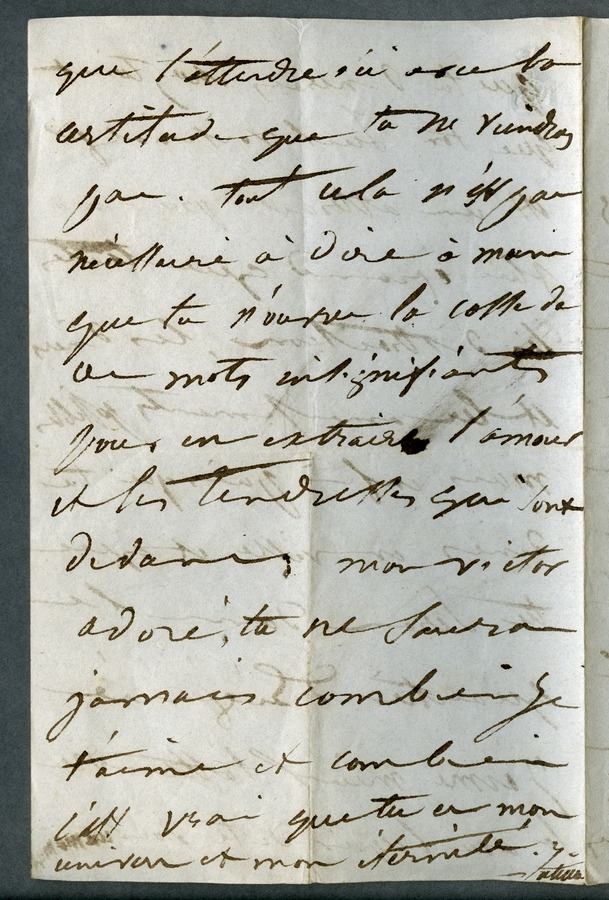 que t'attendre ici avec la
certitude que tu ne viendras
pas. tout cela n'est pas
nécessaire à dire à moins
que tu n'ouvres la cosse de
ces mots insignifiants
pour en extraire l'amour
et les tendresses qui sont
dedans, mon victor
adoré, tu ne sauras
jamais combien je
t'aime et combien
c'est vrai que tu es mon
univers et mon éternité.